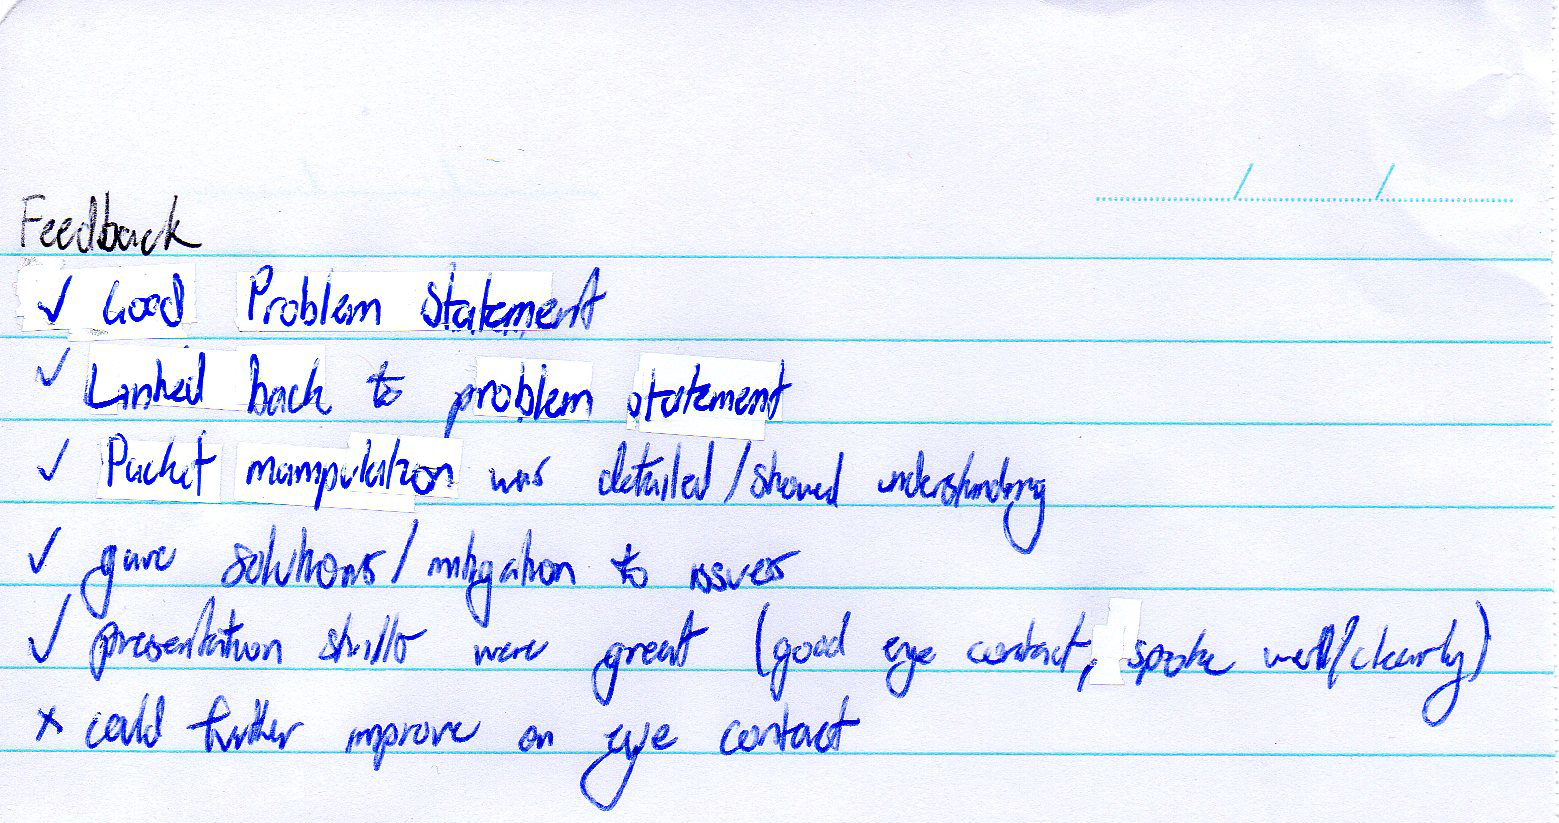 Feedback
✓ Good Problem Statement
✓ Linked back to problem statement
✓ Packet manipulation was detailed/showed understanding
✓ gave solutions/mitigation to issues
✓ presentation skills were great (good eye contact, spoke well/clearly)
× could further improve on eye contact